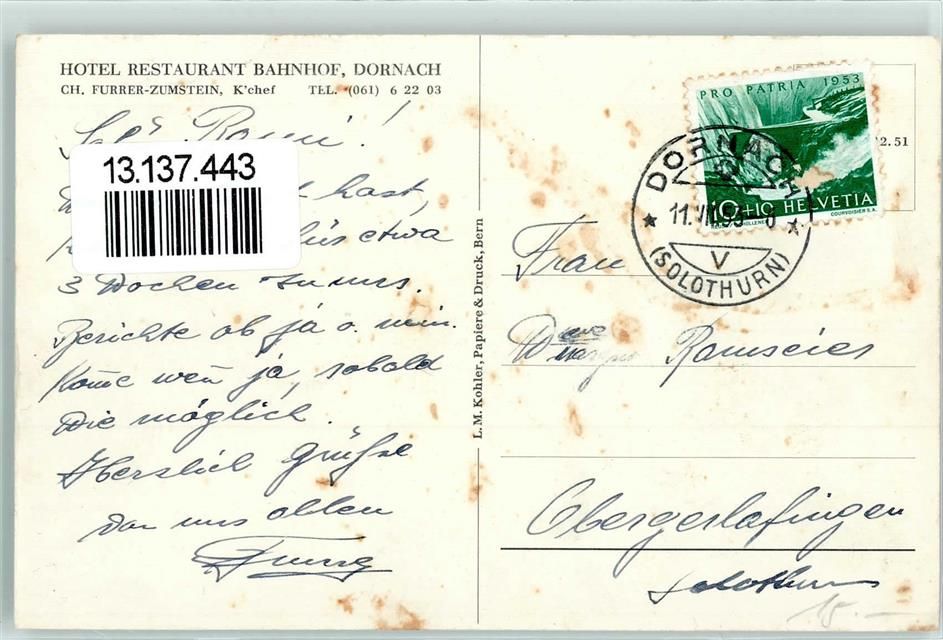 HOTEL RESTAURANT BAHNHOF, DORNACH
CH. FURRER-ZUMSTEIN, K'chef TEL. (061) 6 22 03
13.137.443
hast,
etwa
3 Wochen zu uns.
Berichte ob ja o. nein.
Kome wen ja, sobald
Die möglich.
Herzlich Grüsse
von uns allen
L. M. Kohler, Papiere & Druck, Bern
PRO PATRIA 1953
10+10 HELVETIA
COURVOISIER S.A.
2.51
DORNACH
11.VII.53
V
(SOLOTHURN)
Frau
Ramseier
Obergerlafingen
Solothurn
15.-